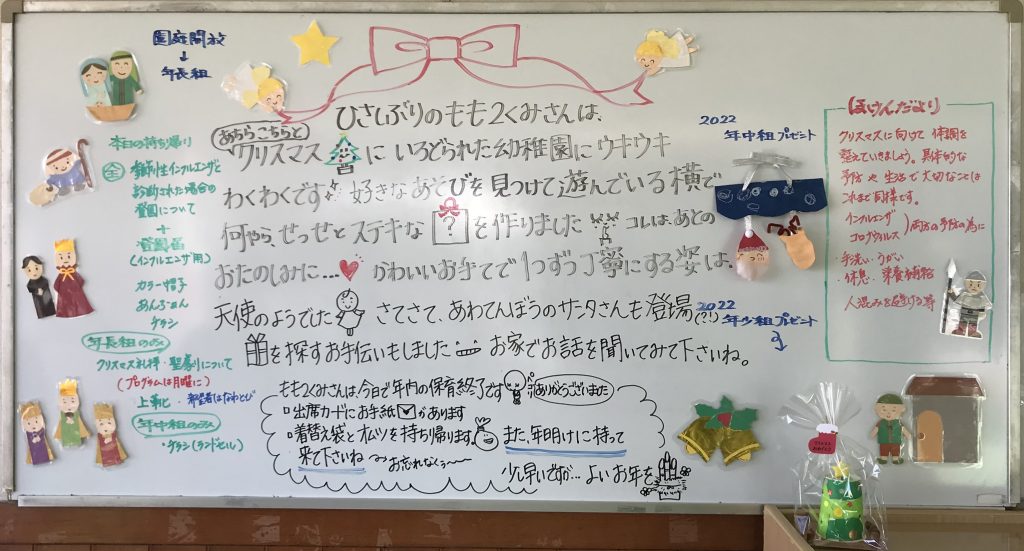 園庭開放
↓
年長組
本日の持ち帰り
全
・季節性インフルエンザと
診断された場合の
登園について
+
登園届
(インフルエンザ用)
カラー帽子
あんふぁん
チラシ
年長組のみ
クリスマス礼拝・聖劇について
(プログラムは月曜に)
上靴・希望者はなわとび
年中組のみ
・チラシ(ランドセル)
ひさしぶりのもも2くみさんは、
あちらこちらと
クリスマスにいろどられた幼稚園にウキウキ
わくわくです 好きなあそびを見つけて遊んでいる横で
何やら、せっせとステキな?を作りました コレは、あとの
おたのしみに…♥ かわいいお手てで1つずつ丁寧にする姿は、
天使のようでした さてさて、あわてんぼうのサンタさんも登場(?!)
を探すお手伝いもしました お家でお話を聞いてみて下さいね。
もも2くみさんは、今日で年内の保育終了です ありがとうございました
・出席カードにお手紙✓があります
・着替え袋とオムツを持ち帰ります。また、年明けに持って
来て下さいね 〜お忘れなくぅ〜
少し早いですが… よいお年を
2022
年中組プレゼント
2022
年少組プレゼント
ほけんだより
クリスマスに向けて体調を
整えていきましょう。具体的な
予防や生活で大切なことは
これまで同様です。
インフルエンザ
コロナウィルス
両方の予防の為に
・手洗い、うがい
・休息・栄養補給
人混みを避ける等